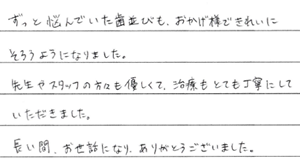 ずっと悩んでいた歯並びも、おかげ様できれいに
そろうようになりました。
先生やスタッフの方々も優しくて、治療もとても丁寧にして
いただきました。
長い間、お世話になり、ありがとうございました。